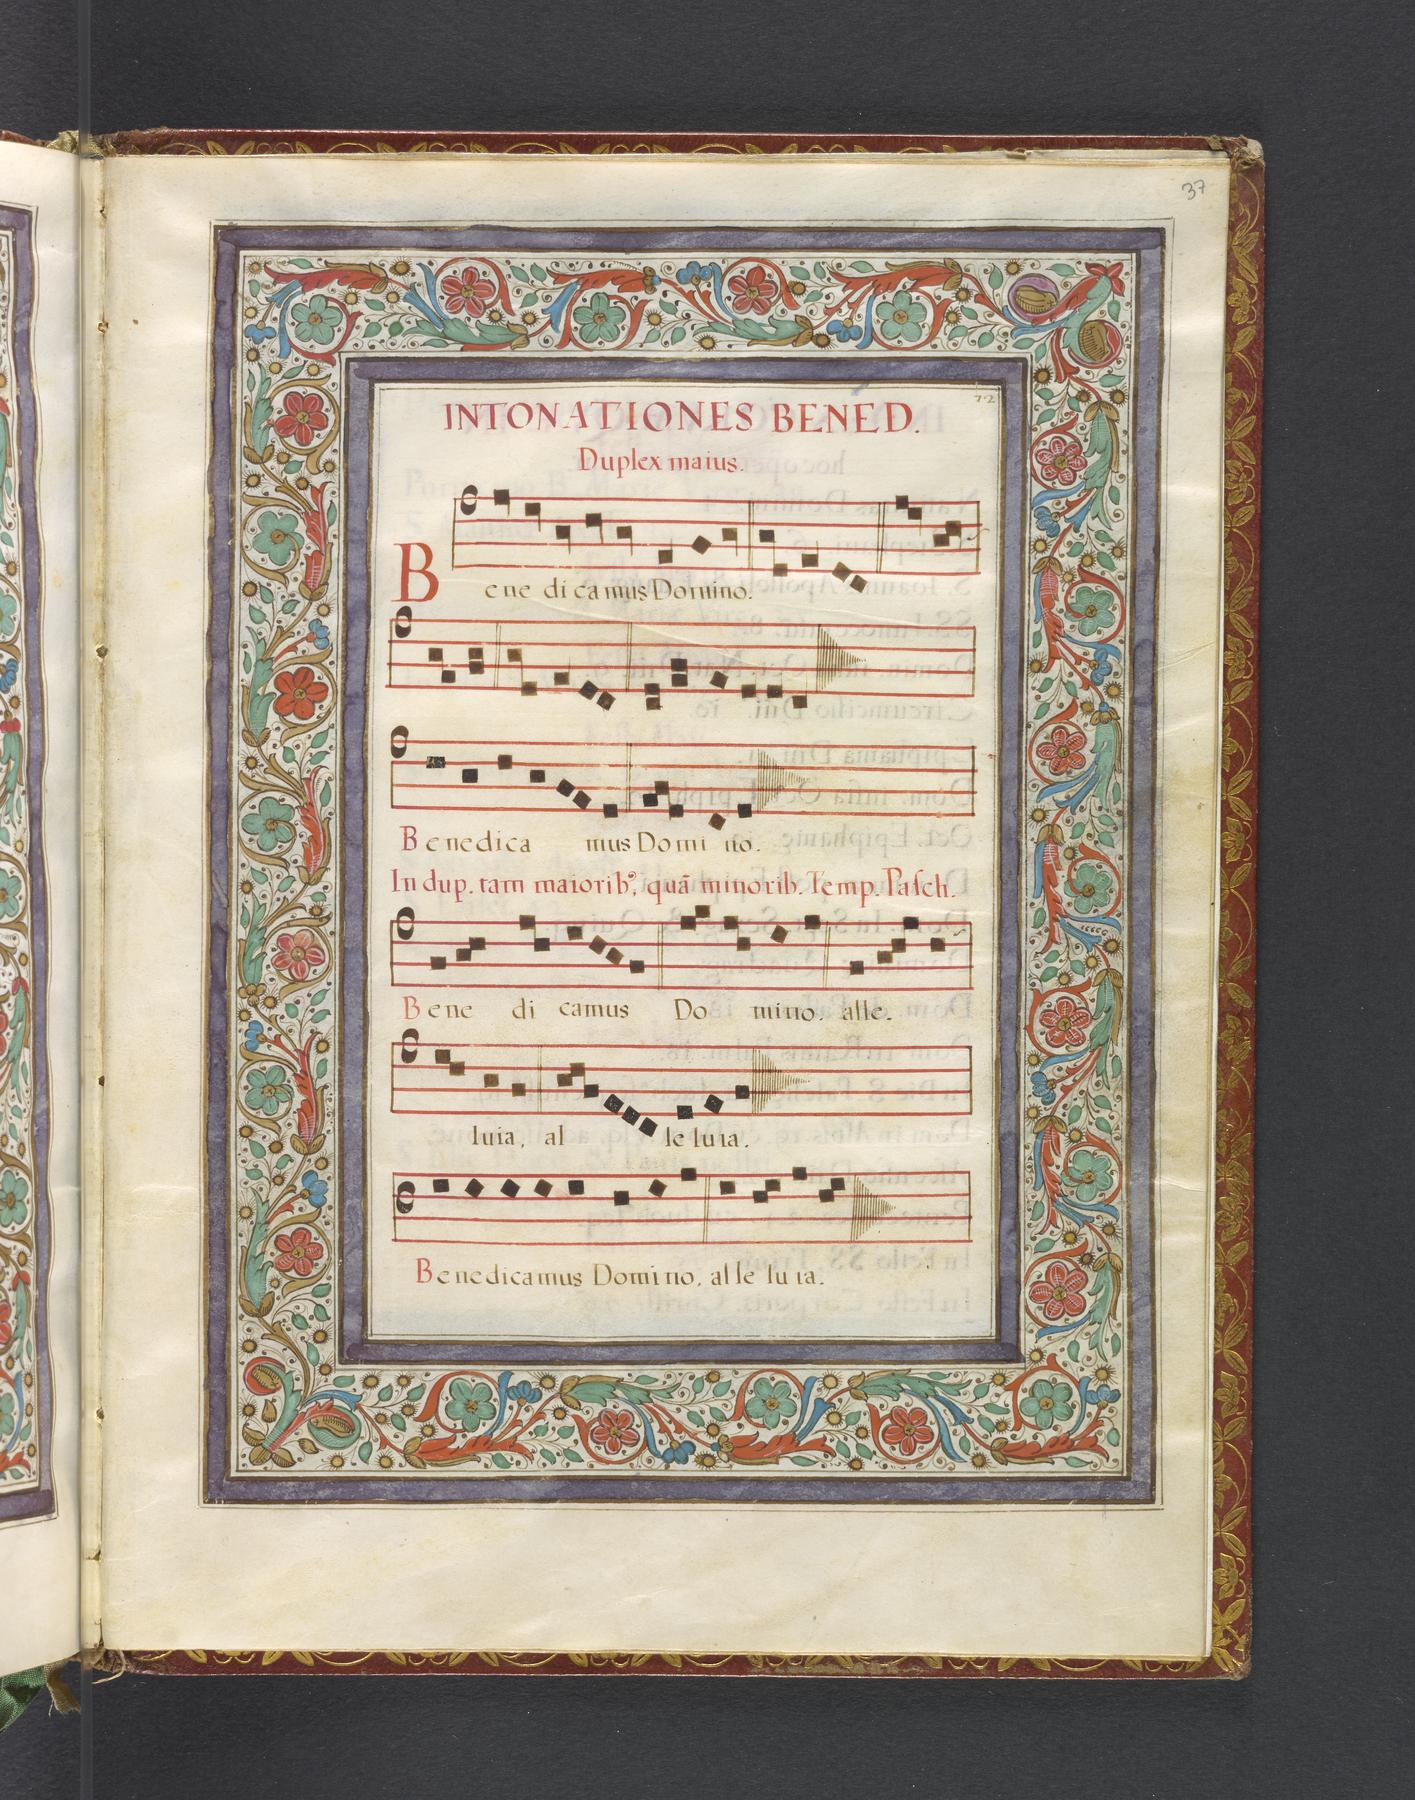 37
72
INTONATIONES BENED.
Duplex maius.
Bene di camus Domino.
Benedica mus Domi no.
In dup. tam maiorib9, quā minorib. Temp. Pasch.
Bene di camus Do mino. alle.
luia, al le luia.
Benedicamus Domino, al le lu ia.